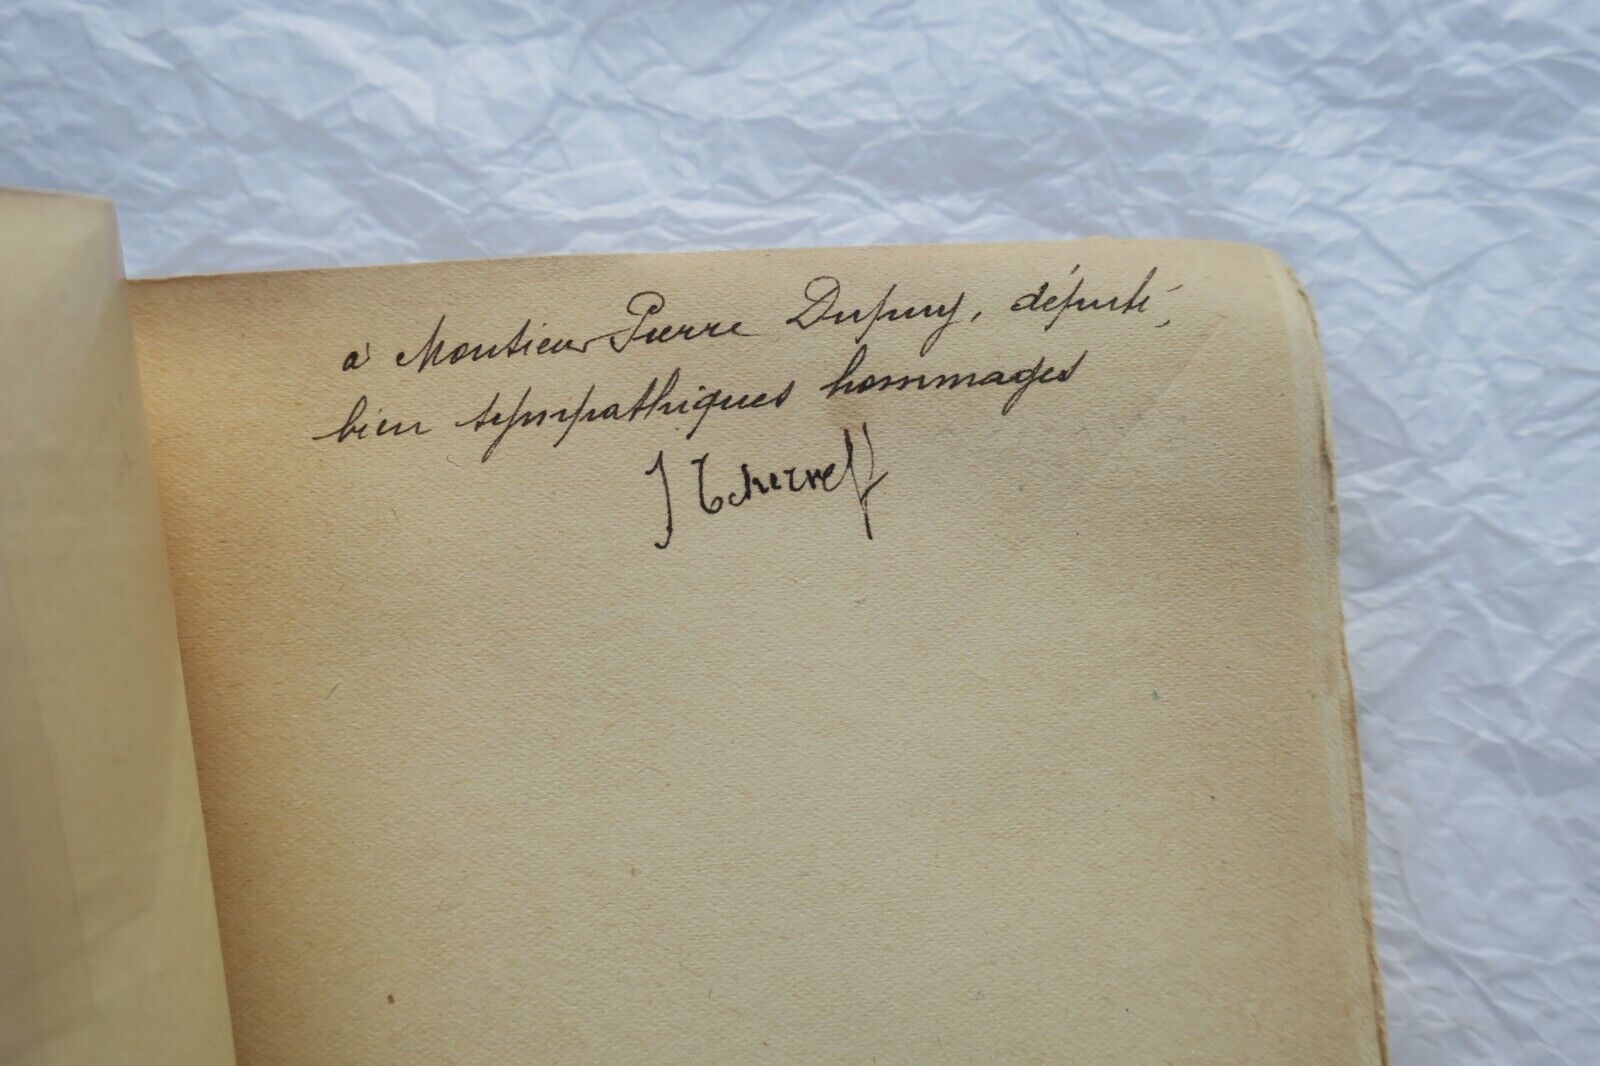 à Monsieur Pierre Dupuy, député,
bien sympathiques hommages
J Tcherneff